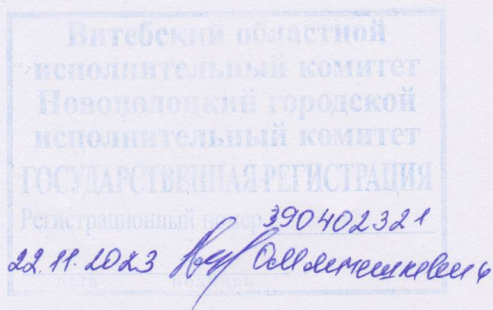 Витебский областной
исполнительный комитет
Новополоцкий городской
исполнительный комитет
ГОСУДАРСТВЕННАЯ РЕГИСТРАЦИЯ
Регистрационный номер 390402321
22.11.2023